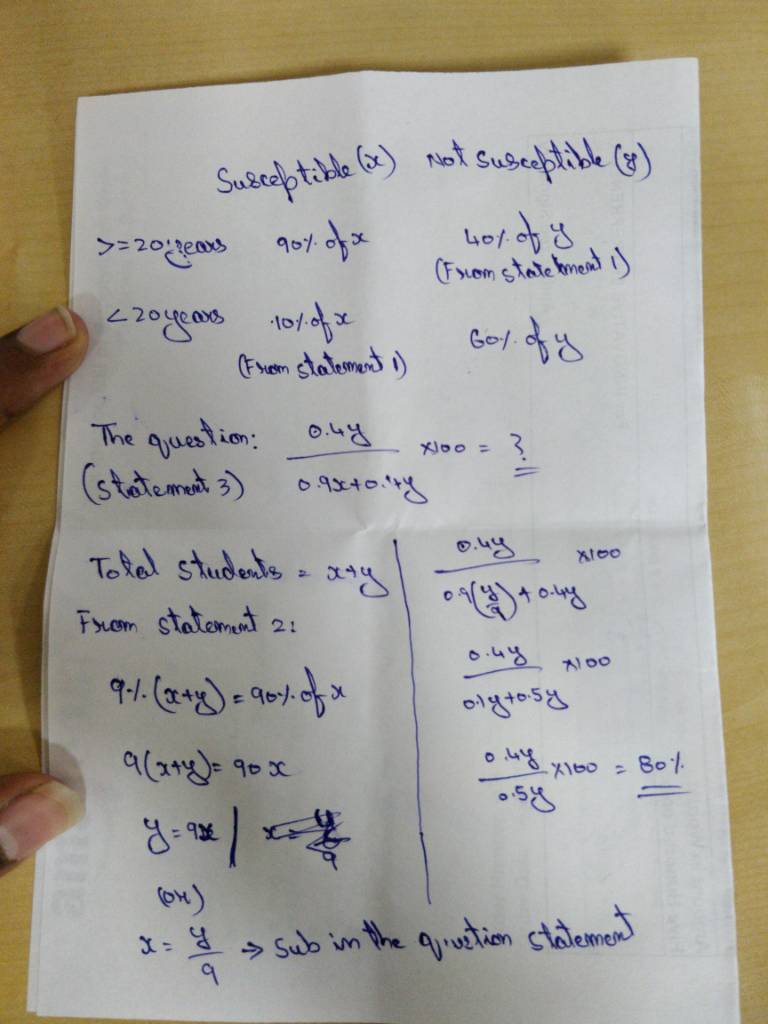 Susceptible (x) Not Susceptible (y)
>=20 years 90% of x 40% of y
(From statement 1)
<20 years 10% of x 60% of y
(From statement 1)
The question: 0.4y / 0.9x+0.4y ×100 = ?
(Statement 3)
Total students = x+y
From statement 2:
9% (x+y) = 90% of x
9(x+y) = 90x
y = 9x
(or)
x = y/9 → Sub in the question statement
0.4y / 0.9(y/9) + 0.4y ×100
0.4y / 0.1y+0.5y ×100
0.4y / 0.5y ×100 = 80%